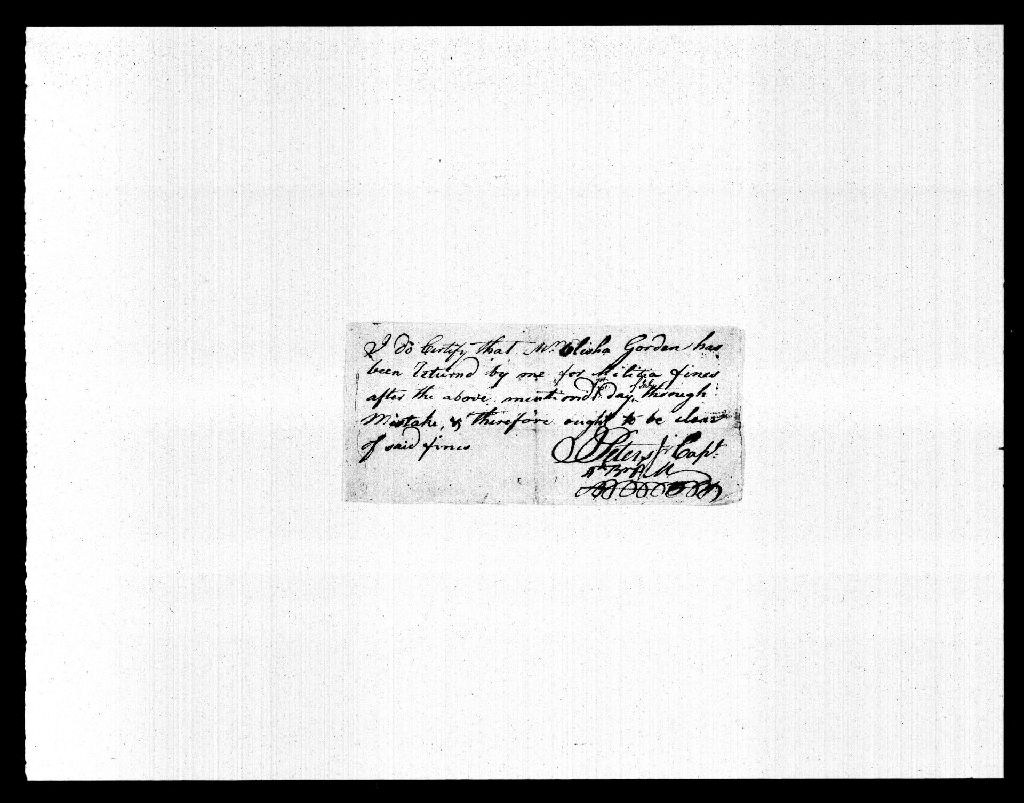 I do Certify that Mr. Elisha Gorden has
been Returnd by me for Militia fines
after the above mentiond day through
Mistake, & therefore ought to be clear
of said fines
Peters Capt.